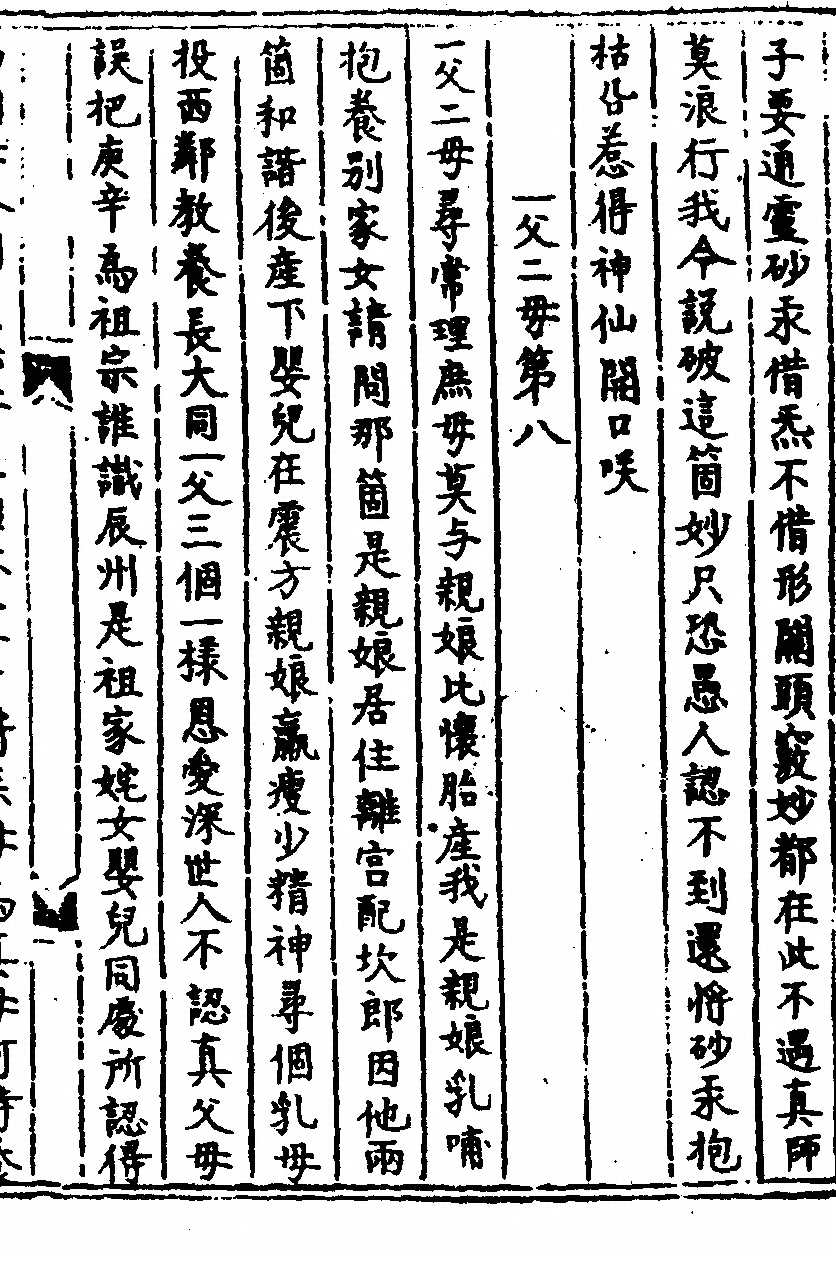 子要通靈砂汞借炁不借形關頭竅妙都在此不遇真師
莫浪行我今説破這箇妙只恐愚人認不到還將砂汞抱
枯㕣惹得神仙開口咲
一父二母第八
一父二母尋常理庶母莫与親娘比懷胎産我是親娘乳哺
抱養別家女請問那箇是親娘居住離宫配坎郎因他兩
箇和諧後産下嬰兒在震方親娘羸瘦少精神尋個乳母
投西鄰教養長大同一父三個一樣恩愛深世人不認真父母
誤把庚辛為祖宗誰識辰州是祖家姹女嬰兒同處所認得